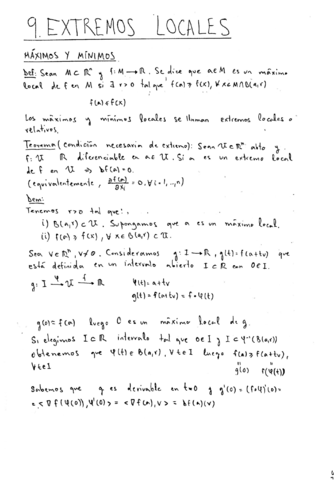 9. EXTREMOS LOCALES
MÁXIMOS Y MÍNIMOS
Def: Sean M⊂ℝⁿ y f: M→ℝ. Se dice que a∈M es un máximo
local de f en M si ∃ r>0 tal que f(a) ≥ f(x), ∀x∈M∩B(a,r)
f(a) ≥ f(x)
Los máximos y mínimos locales se llaman extremos locales o
relativos.
Teorema (condición necesaria de extremo): Sean U⊂ℝⁿ abto y
f: U ℝ diferenciable en a∈U. Si a es un extremo local
de f en U ⇒ Df(a)=0.
(equivalentemente, ∂f(a)/∂xᵢ = 0, ∀i=1,...,n)
Dem:
Tenemos r>0 tal que:
i) B(a,r)⊂U. Supongamos que a es un máximo local.
ii) f(a) ≥ f(x), ∀x∈B(a,r)⊂U.
Sea v∈ℝⁿ, v≠0. Consideramos g: I→ℝ, g(t)=f(a+tv) que
está definida en un intervalo abierto I⊂ℝ con 0∈I.
g: I →^φ U →^f ℝ φ(t)=a+tv
g(t)=f(a+tv)=f∘φ(t)
g(0)=f(a) luego 0 es un máximo local de g.
Si elegimos I⊂ℝ intervalo tal que 0∈I y I⊂φ⁻¹(B(a,r))
obtenemos que φ(t)∈B(a,r), ∀t∈I luego f(a)≥f(a+tv),
∀t∈I g(0) f(φ(t))
Sabemos que g es derivable en t=0 y g'(0)=(f∘φ)'(0)=
=<∇f(φ(0)),φ'(0)>=<∇f(a),v>=Df(a)(v)